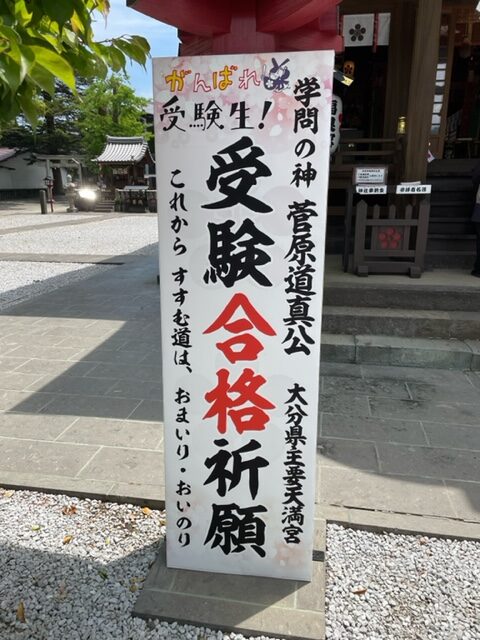 がんばれ
受験生!
学問の神 菅原道真公 大分県主要天満宮
受験合格祈願
これから すすむ道は、おまいり・おいのり